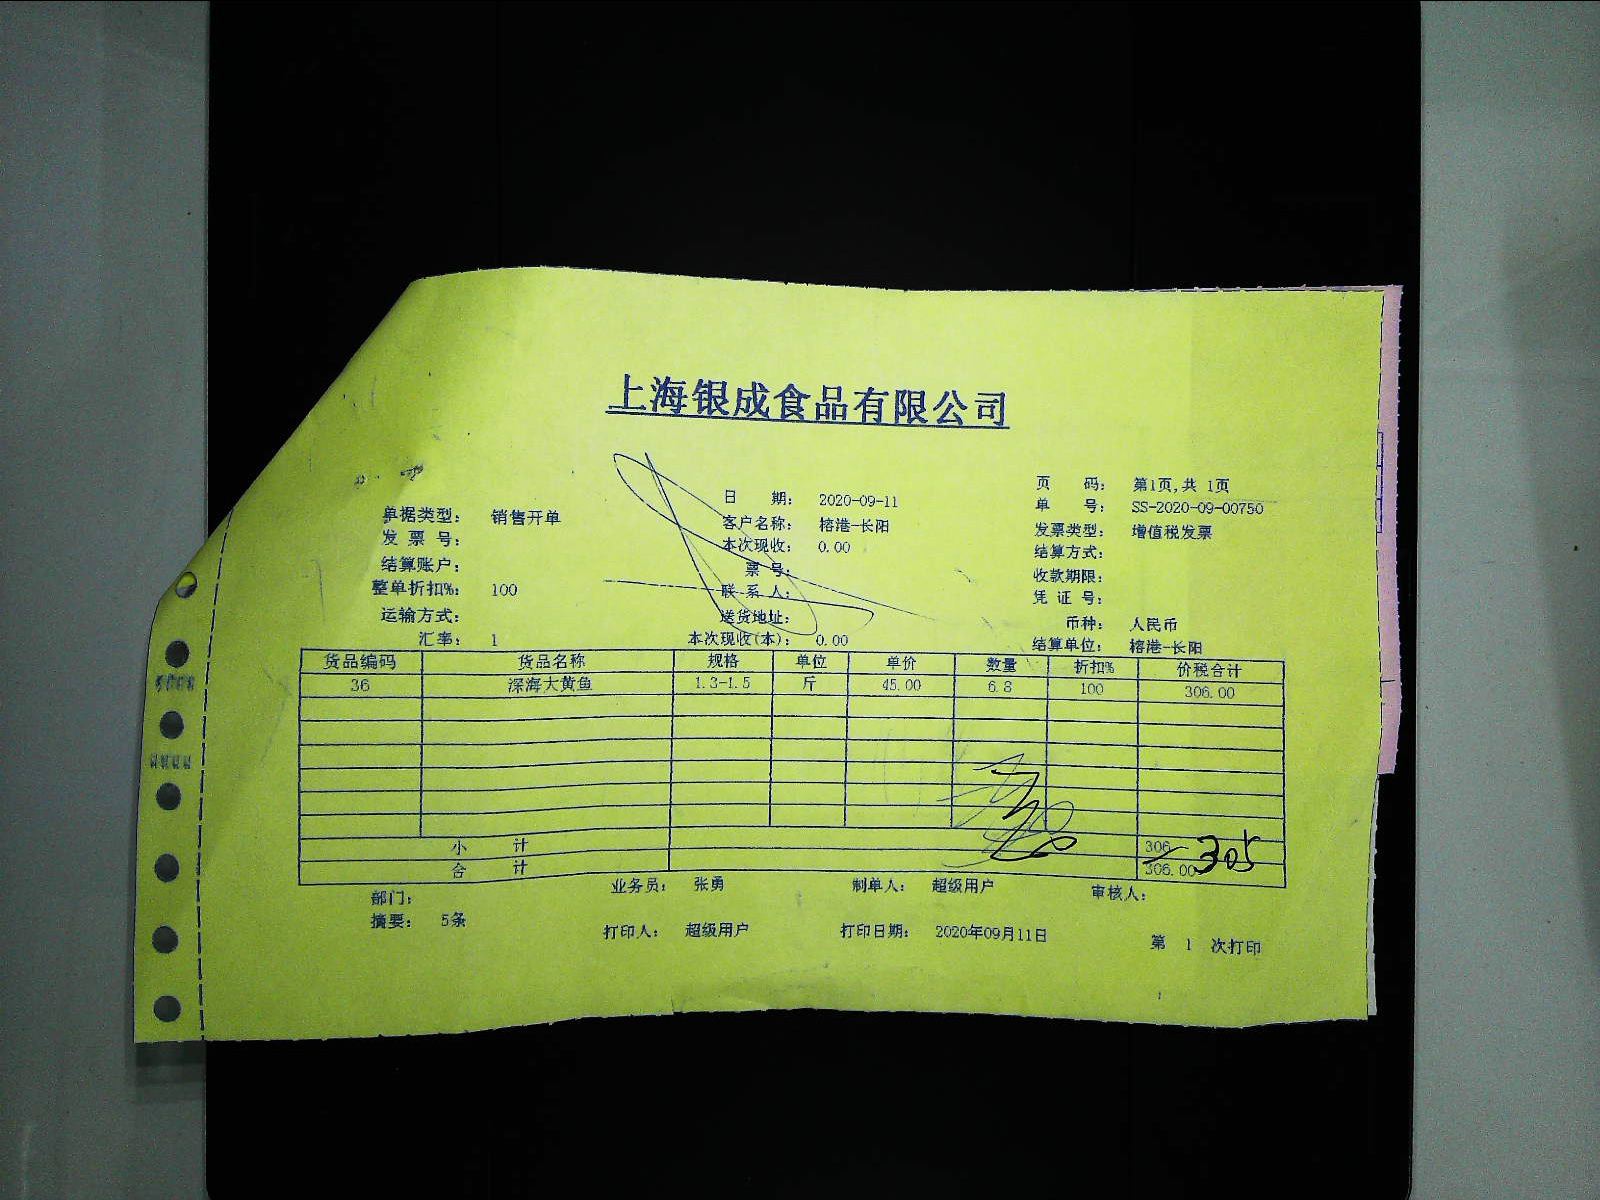 上海银成食品有限公司
单据类型: 销售开单 日 期: 2020-09-11 页 码: 第1页,共 1页
发 票 号: 客户名称: 榕港-长阳 单 号: SS-2020-09-00750
结算账户: 本次现收: 0.00 发票类型: 增值税发票
整单折扣%: 100 票 号: 结算方式:
运输方式: 联 系 人: 收款期限:
汇率: 1 送货地址: 凭 证 号:
本次现收(本): 0.00 币种: 人民币
结算单位: 榕港-长阳
货品编码 货品名称 规格 单位 单价 数量 折扣% 价税合计
36 深海大黄鱼 1.3-1.5 斤 45.00 6.8 100 306.00
小 计 306
合 计 306.00 305
部门: 业务员: 张勇 制单人: 超级用户 审核人:
摘要: 5条 打印人: 超级用户 打印日期: 2020年09月11日 第 1 次打印